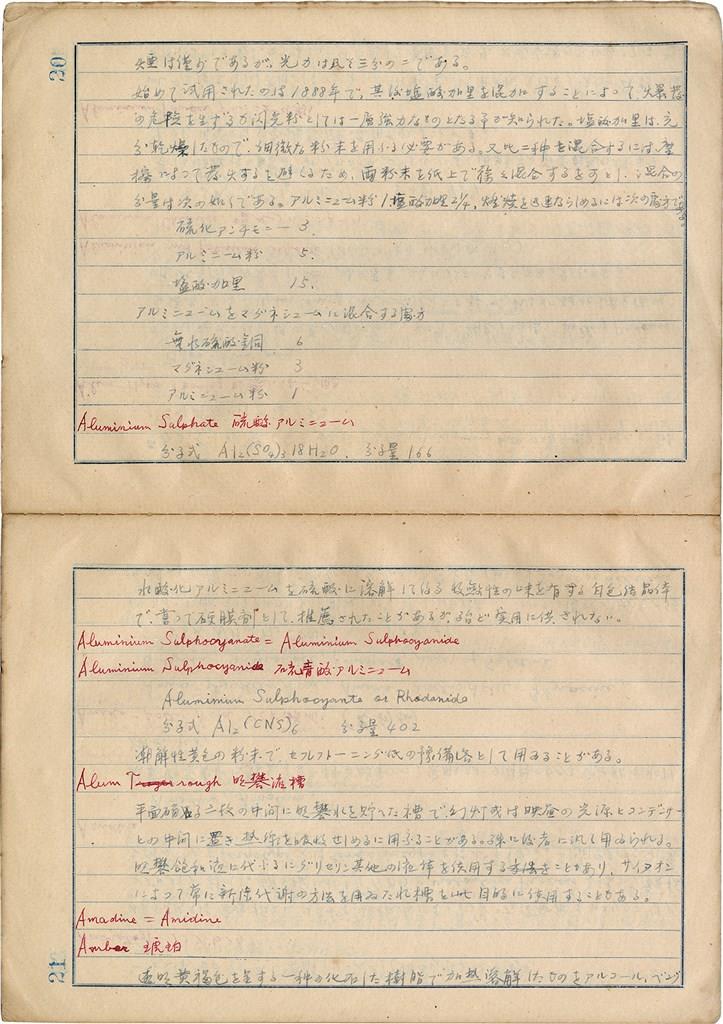 20
煙は僅少であるが、光力は凡そ三分の二である。
始めて試用されたのは1888年で、其後塩酸加里を混加することによって、爆発
の危険を生ずるが閃光粉としては一層強力なものとなる事が知られた。塩酸加里は、充
分乾燥したもので、細微な粉末を用ふる必要がある。又此二種を混合するには、摩
擦によって発火するを避くるため、両粉末を紙上で軽く混合するをすとし、混合の
分量は次の如くである。アルミニューム粉1塩酸加里2/4、燃焼を迅速ならしめるには次の処方である
硫化アンチモニー 3.
アルミニーム粉 5.
塩酸加里 15.
アルミニュームをマグネシュームに混合する處方
無水硫酸銅 6
マグネシューム粉 3
アルミニューム粉 1
Aluminium Sulphate 硫酸アルミニューム
分子式 Al2(SO4)3 18H2O. 分子量 166
水酸化アルミニュームを硫酸に溶解して得る収斂性の味を有する白色結晶体
で、曽って硬膜剤として、推薦されたことがあるが、殆ど実用に供されない。
Aluminium Sulphocyanate = Aluminium Sulphocyanide
Aluminium Sulphocyanide 硫青酸アルミニューム
Aluminium Sulphocyante or Rhodanide
分子式 Al2(CNS)6 分子量 402
潮解性黄色の粉末で、セルフトーニング紙の予備浴として用ゐることがある。
Alum Trough 明礬液槽
平面硝子る二枚の中間に明礬水を貯へた槽で、幻灯或は映画の光源とコンデンサー
との中間に置き熱線を吸収せしめるに用ふることがある。殊に後者に汎く用ゐられる。
明礬飽和液に代ふるにグリセリン其他の液体を使用することもあり、サイフォン
によって常に新陳代謝の方法を用ゐたれ槽を此目的に使用することもある。
Amadine = Amidine
Amber 琥珀
透明黄褐色を呈する一種の化石した樹脂で加熱溶解したものをアルコール、ベンゾ
21